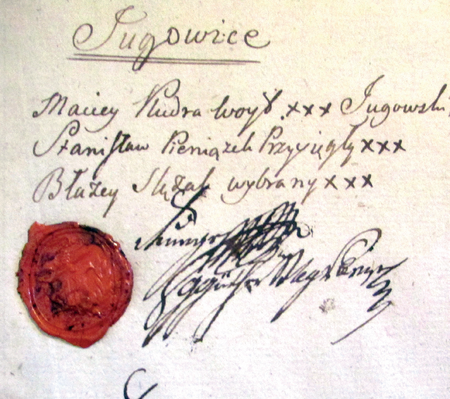 Jugowice
Maciey Kudra woyt xxx Jugowski
Stanisław Pieniązek Przysięgły xxx
Błażey Slęzak wybrany xxx